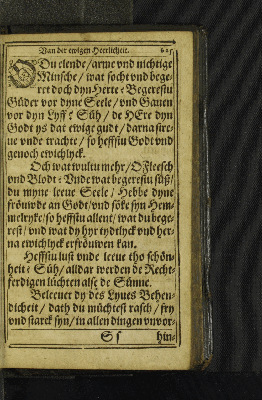 Van der ewigen Heerlicheit. 625
O Du elende/ arme vnd nichtige
Minsche/ wat socht vnd bege-
ret doch dyn Herte? Begerestu
Güder vor dyne Seele/ vnd Gauen
vor dyn Lyff? Süh/ de HEre dyn
Godt ys dat ewige gudt/ darna stre-
ue vnde trachte/ so heffstu Godt vnd
genoch ewichlyck.
Och wat wultu mehr/ O Fleesch
vnd Blodt? Vnde wat begerestu süß/
du myne leeue Seele/ Hebbe dyne
fröuwde an Godt/ vnd söke syn Hem-
melryke/ so heffstu allent/ wat du bege-
rest/ vnd wat dy hyr tydtlyck vnd her-
na ewichlyck erfröuwen kan.
Heffstu lust vnde leeue tho schön-
heit? Süh/ alldar werden de Recht-
ferdigen lüchten alse de Sünne.
Beleeuet dy des Lyues Behen-
dicheit/ dath du müchtest rasch/ fry
vnd starck syn/ in allen dingen vnvor-
S s hin-